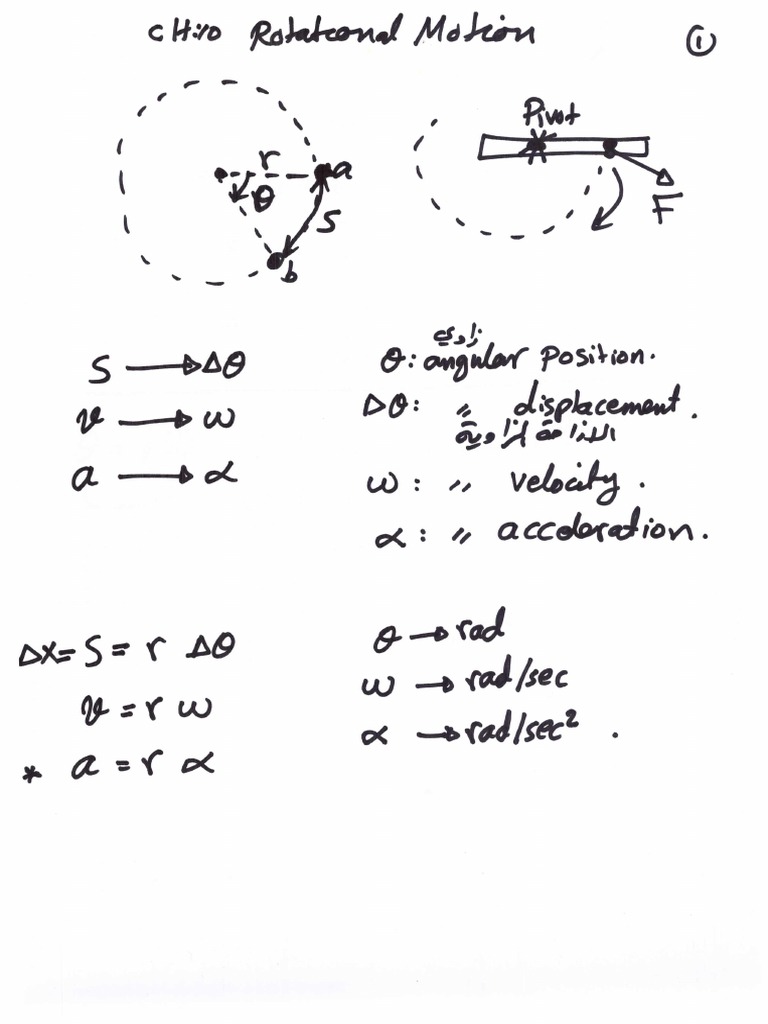 CH:10 Rotational Motion
①
r
a
θ
S
b
Pivot
F
S → Δθ
v → ω
a → α
زاوي
θ: angular position.
Δθ: 〃 displacement.
الازاحة الزاوية
ω: 〃 velocity.
α: 〃 acceleration.
Δx= S = r Δθ
v = r ω
* a = r α
θ → rad
ω → rad/sec
α → rad/sec² .